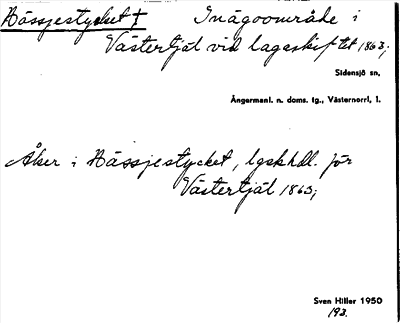 Hässjestycket † Inägoområde i
Västertjäl vid lagaskiftet 1863;
Sidensjö sn,
Ångermanl. n. doms. tg., Västernorrl, l.
Åker i Hässjestycket, lgskhdl. för
Västertjäl 1863;
Sven Hiller 1950
193.